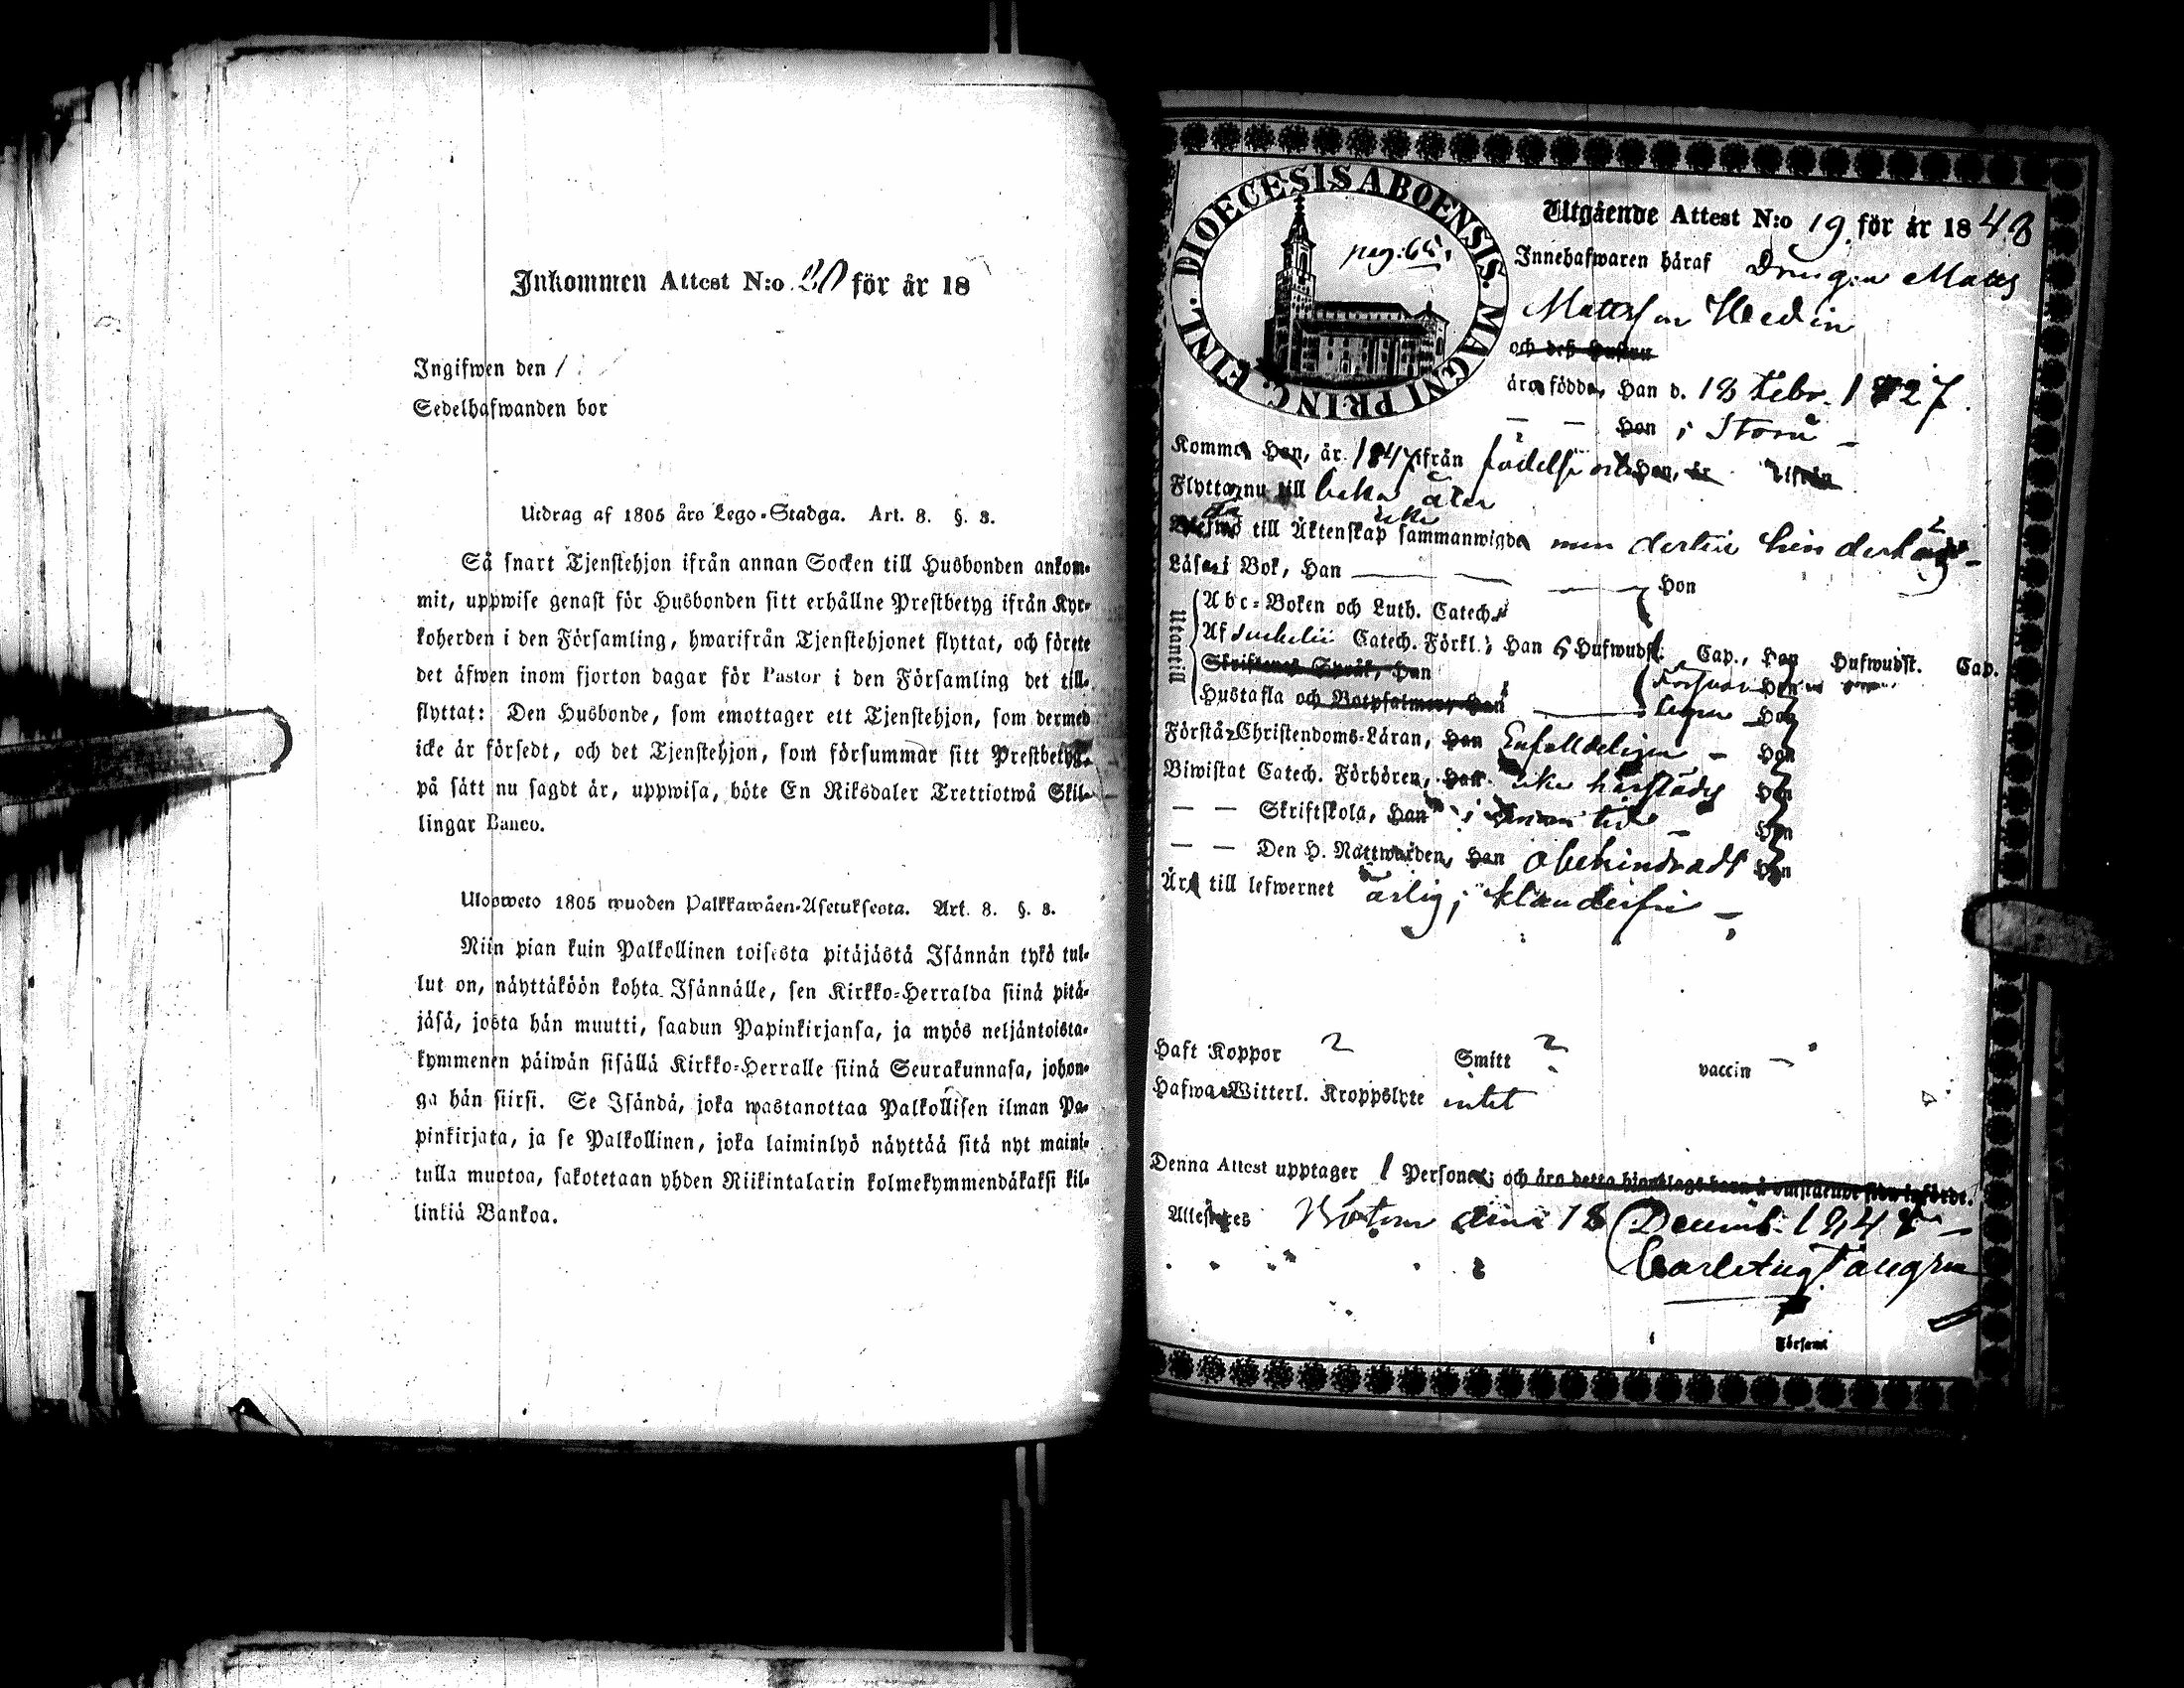 Inkommen Attest N:o 20 för år 18
Ingifwen den 1
Sedelhafwanden bor
Utdrag af 1805 års Lego-Stadga. Art. 8. §. 3.
Så snart Tjenstehjon ifrån annan Socken till Husbonden ankom-
mit, uppwise genast för Husbonden sitt erhållne Prestbetyg ifrån Kyr-
koherden i den Församling, hwarifrån Tjenstehjonet flyttat, och förete
det äfwen inom fjorton dagar för Pastor i den Församling det till-
flyttat: Den Husbonde, som emottager ett Tjenstehjon, som dermed
icke är försedt, och det Tjenstehjon, som försummar sitt Prestbetyg,
på sätt nu sagdt är, uppwisa, böte En Riksdaler Trettiotwå Skil-
lingar Banco.
Ulosweto 1805 wuoden Palkkawäen-Asetuksesta. Art. 8. §. 3.
Niin pian kuin Palkollinen toisesta pitäjästä Isännän tykö tul-
lut on, näyttäköön kohta Isännälle, sen Kirkko-Herralda siinä pitä-
jäsä, josta hän muutti, saadun Papinkirjansa, ja myös neljäntoista-
kymmenen päiwän sisällä Kirkko-Herralle siinä Seurakunnasa, johon-
ga hän siirsi. Se Isändä, joka wastanottaa Palkollisen ilman Pa-
pinkirjata, ja se Palkollinen, joka laiminlyö näyttää sitä nyt maini-
tulla muotoa, sakotetaan yhden Riikintalarin kolmekymmendäkaksi kil-
linkiä Bankoa.
FINL. DIOECESIS ABOENSIS. MAGNI PRINC.
pag: 65.
Utgående Attest N:o 19. för år 1848
Innehafwaren häraf Drengen Matts
Mattsson Hedin
och deß hustru
äro födde, Han d. 18 Febr. 1827.
— — Hon i Storå —
Komme Han, år 1847 ifrån födelse orten Hon, år ifrån
Flytta nu till baka åter
till Äktenskap icke sammanwigde men dertill hinderslös
Läsa i Bok, Han Hon
Utantill
Abc-Boken och Luth. Catech.
Af Catech. Förkl. Han 6 Hufwudst. Cap., Hon Hufwudst. Cap.
Skriftenes Språk, Han Hon
Hustafla och Botpsalmer, Han Hon
Förstå Christendoms-Läran, Han Enfaldeligen — Hon
Biwistat Catech. Förhören, Han icke härstädes Hon
— — Skriftskola, Han i tid — Hon
— — Den H. Nattwarden, Han obehindradt Hon
Är till lefwernet ärlig, klanderfri —
Haft Koppor ? Smitt ? vaccin —
Hafwa Witterl. Kroppslyte intet
Denna Attest upptager 1 Personer; och äro detta hjonelags barn å omstående sida införde.
Attesteres Bötom den 18 Decemb. 184
Carl Aug Tångren
Församl